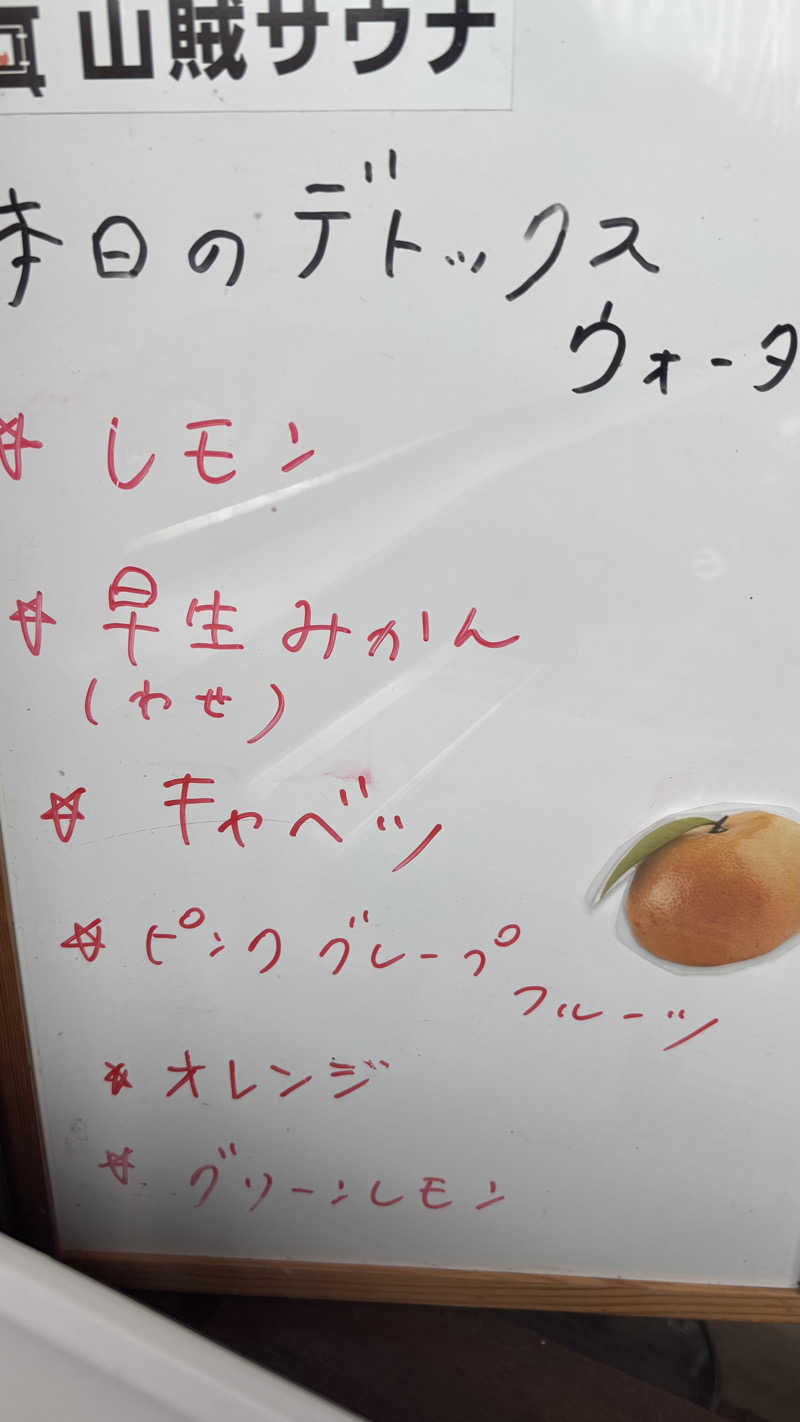 山賊サウナ
本日のデトックス
ウォータ
☆ レモン
☆ 早生みかん
(わせ)
☆ キャベツ
☆ ピンクグレープ
フルーツ
☆ オレンジ
☆ グリーンレモン